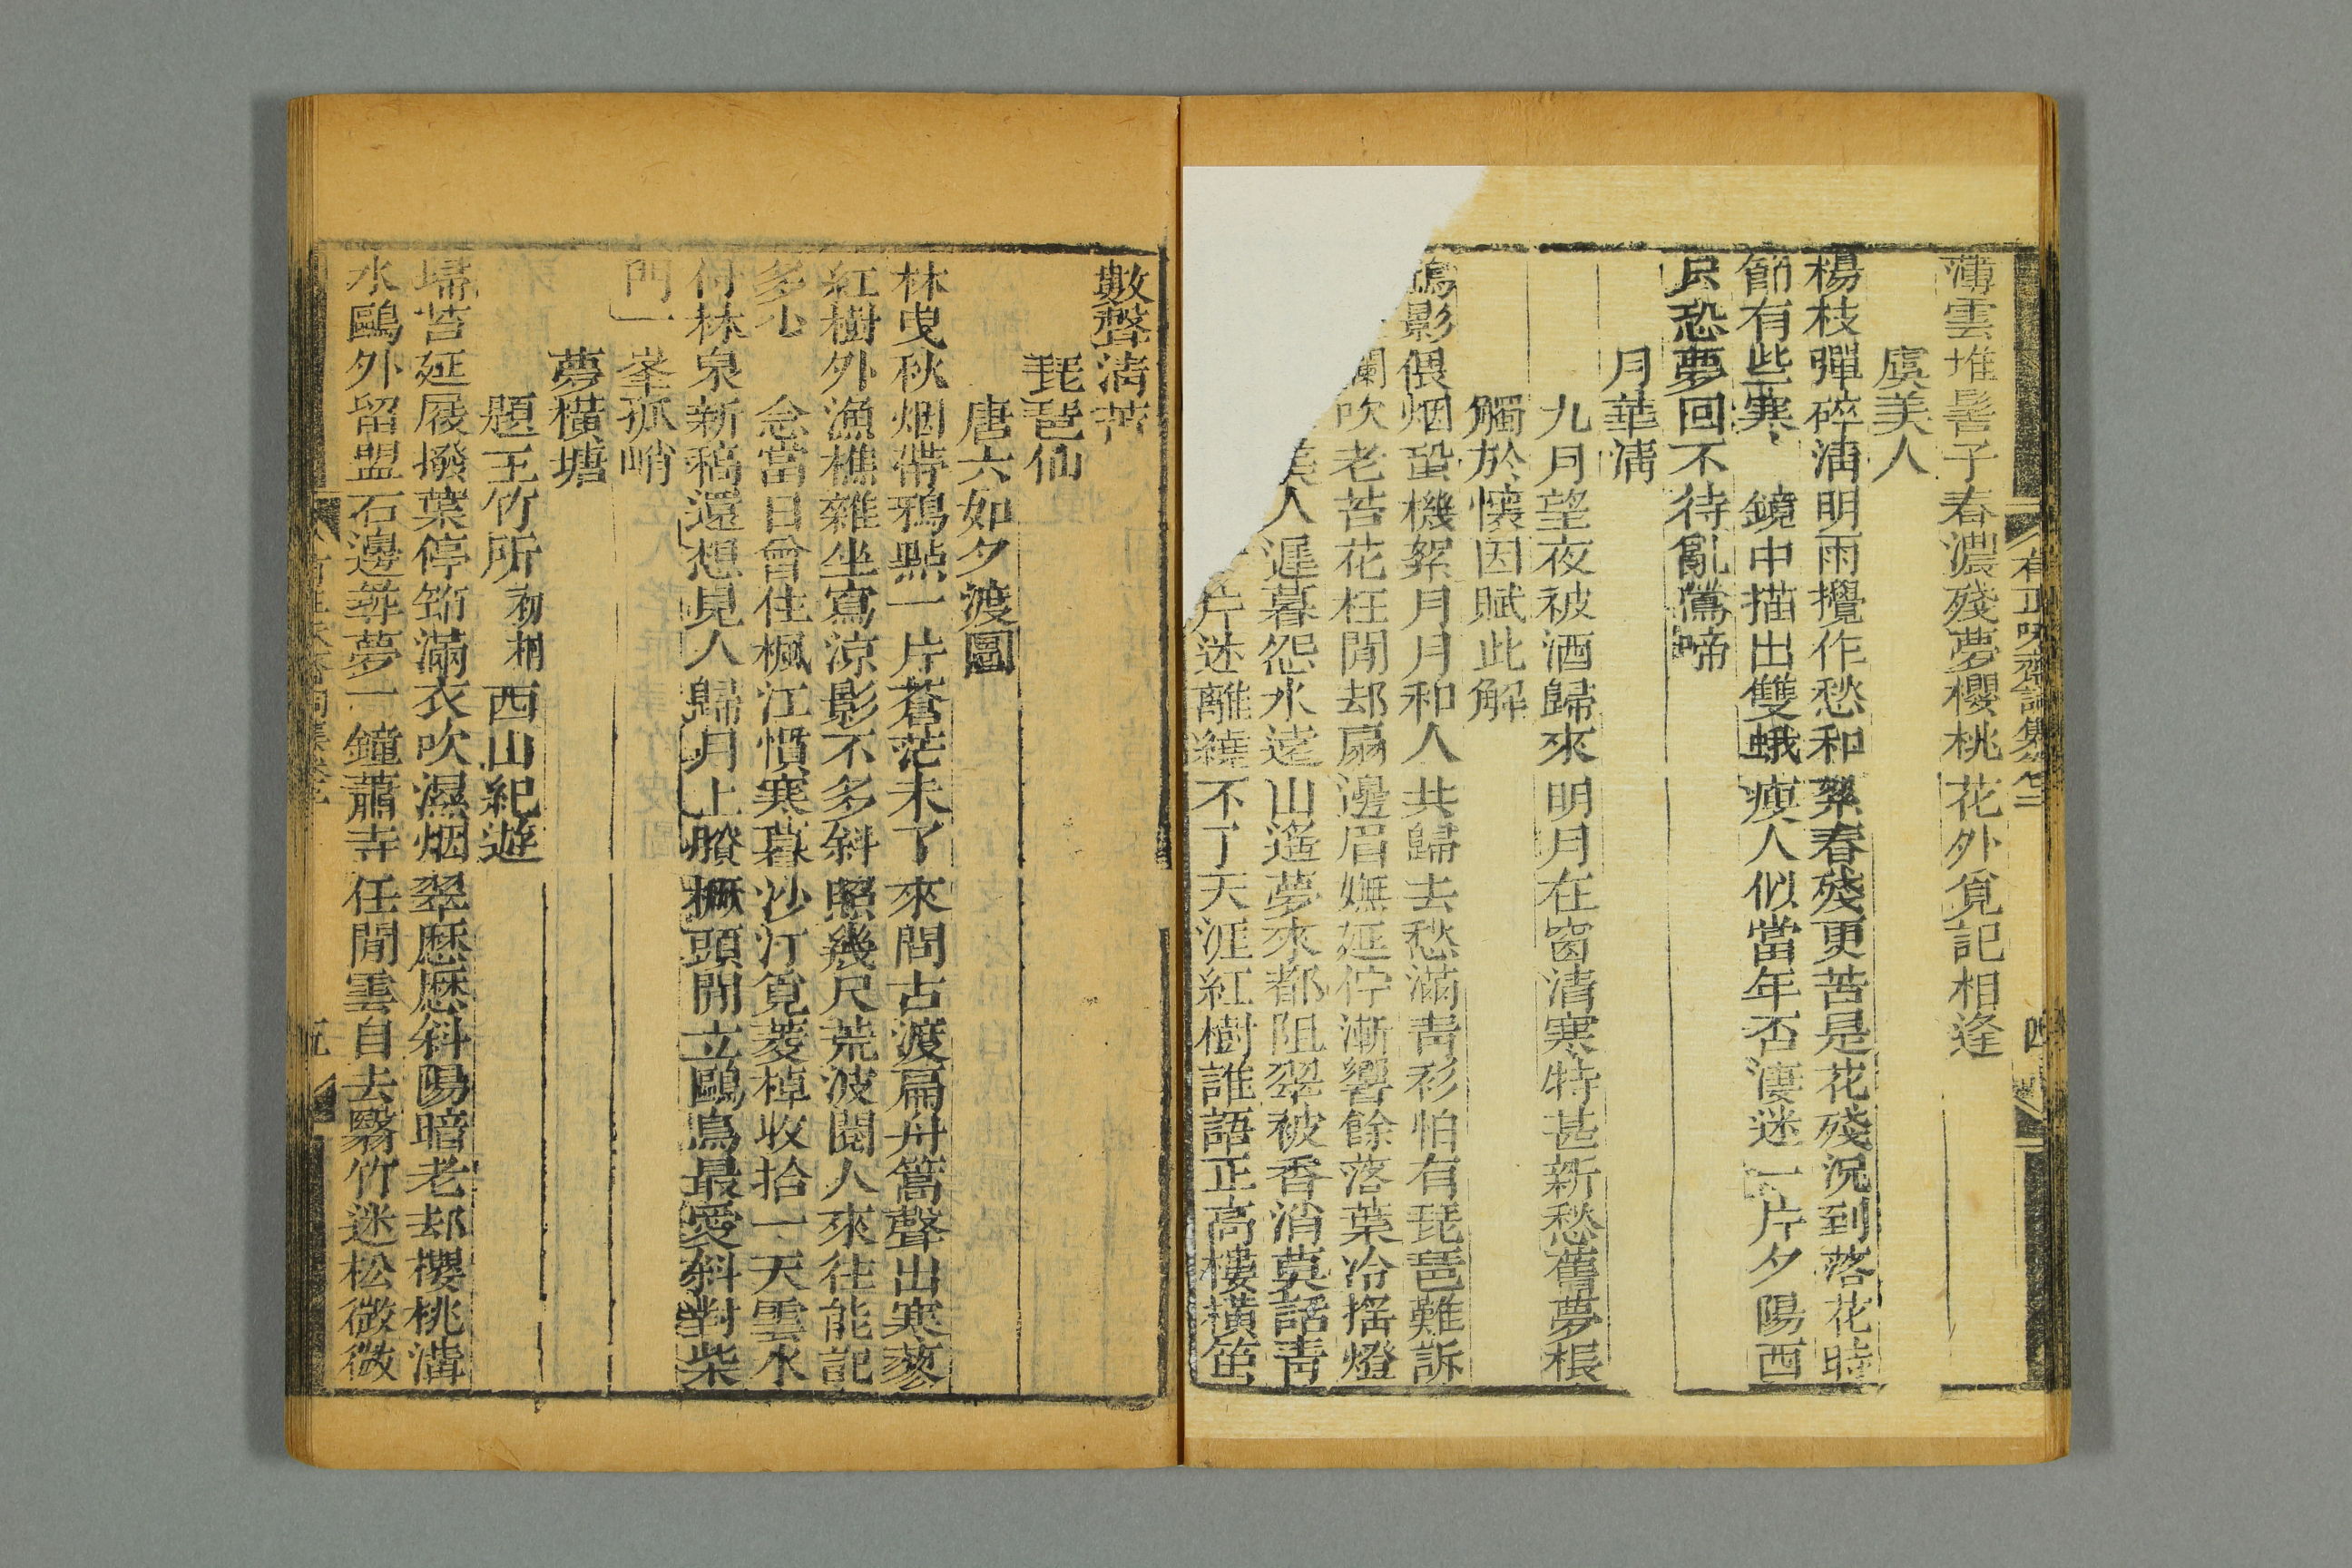 薄雲堆髻子春濃殘夢櫻桃花外覓記相逢
虞美人
楊枝彈碎清明雨攪作愁和絮春殘更苦是花殘況到落花時
節有些寒 鏡中描出雙蛾瘼人似當年否淒迷一片夕陽西
只恐夢回不待亂鶯啼
月華淸
九月望夜被酒歸來明月在窗清寒特甚新愁舊夢根
觸於懷因賦此解
影偎烟蛩機絮月月和人共歸去愁滿靑衫怕有琵琶難訴
吹老苔花枉閒却扇邊眉嫵延佇漸響餘落葉冷搖燈
人遲暮怨水遠山遙夢來都阻翠被香消莫話靑
片迷離繞不了天涯紅樹誰語正高樓橫笛
四
數聲淸苦
琵琶仙
唐六如夕渡圖
林曳秋烟帶鴉點一片蒼茫未了來問古渡扁舟篙聲出寒蓼
紅樹外漁樵雜坐寫涼影不多斜照幾尺荒波閱人來往能記
多少 念當日曾住楓江慣寒暮沙汀覓菱棹收拾一天雲水
付林泉新稿還想見人歸月上艤橛頭閒立鷗鳥最愛斜對柴
門一峯孤峭
夢橫塘
題王竹所初桐西山紀遊
埽苔延屐撥葉停筇滿衣吹濕烟翠歷歷斜陽暗老却櫻桃溝
水鷗外留盟石邊尋夢一鐘蕭寺任閒雲自去翳竹迷松微微
五